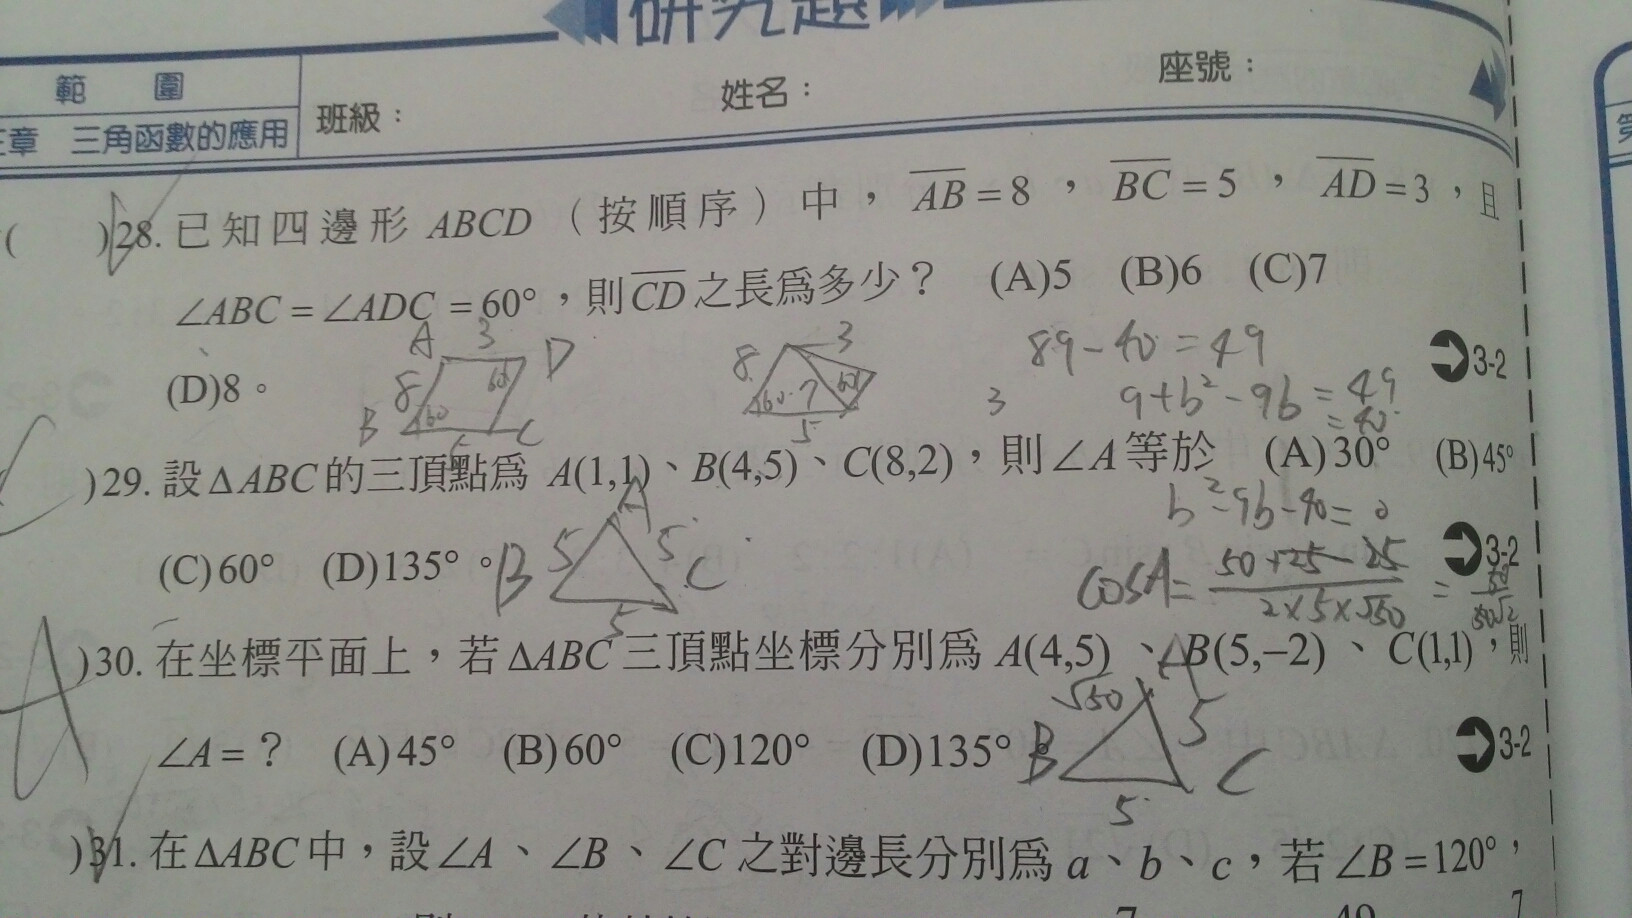 研究題
範 圍
章 三角函數的應用
班級：
姓名：
座號：
( )28. 已知四邊形 ABCD（按順序）中，AB=8，BC=5，AD=3，且
∠ABC=∠ADC=60°，則CD之長為多少？ (A)5 (B)6 (C)7
(D)8。
3-2
A 3 D
8 60 60
B C
8 3
60 7 60
5
89-40=49
3
9+b²-9b=49
=40
b²-9b-40=0
)29. 設ΔABC的三頂點為 A(1,1)、B(4,5)、C(8,2)，則∠A等於 (A)30° (B)45°
(C)60° (D)135°。
3-2
A
B 5 5 C
5
cosA= 50+25-25 / 2×5×√50 =
A
)30. 在坐標平面上，若ΔABC三頂點坐標分別為 A(4,5)、B(5,−2)、C(1,1)，則
∠A=？ (A)45° (B)60° (C)120° (D)135°。
3-2
A
√50 5
B C
5
)31. 在ΔABC中，設∠A、∠B、∠C之對邊長分別為a、b、c，若∠B=120°，
7 49 7